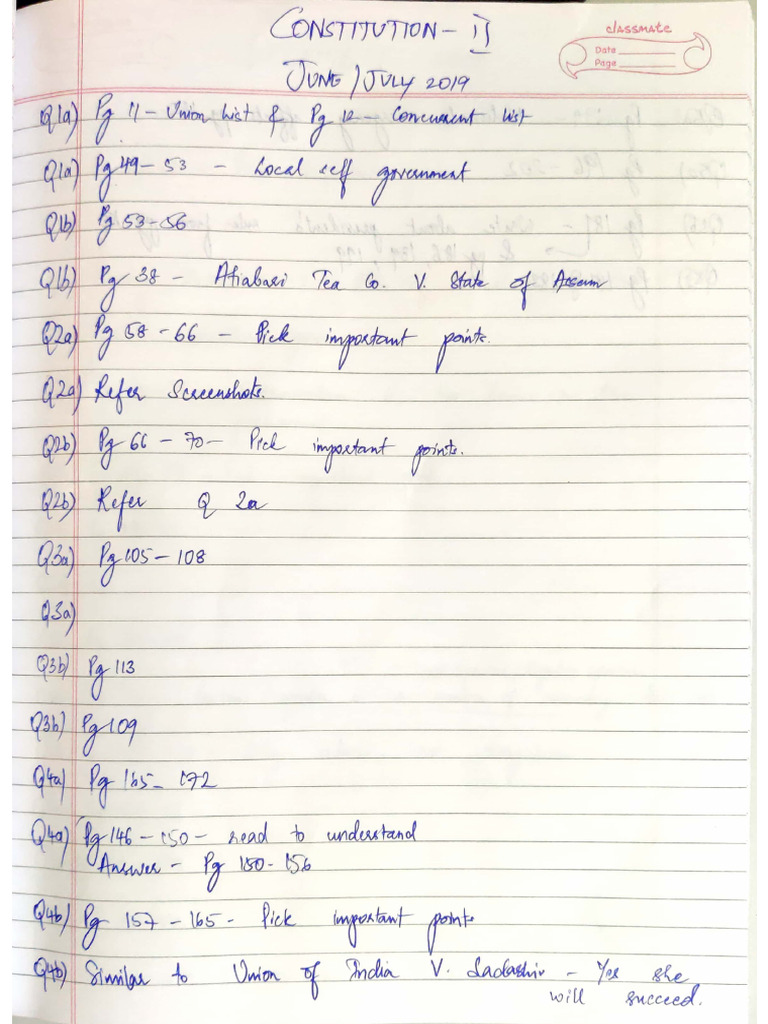 CONSTITUTION - II
classmate
Date
Page
JUNE/JULY 2019
Q1a) Pg 11 - Union List & Pg 12 - Concurrent list
Q1a) Pg 49-53 - Local self government
Q1b) Pg 53-56
Q1b) Pg 38 - Atiabari Tea Co. V. State of Assam
Q2a) Pg 58-66 - Pick important points.
Q2a) Refer Screenshots.
Q2b) Pg 66-70- Pick important points.
Q2b) Refer Q 2a
Q3a) Pg 105-108
Q3a)
Q3b) Pg 113
Q3b) Pg 109
Q4a) Pg 165-172
Q4a) Pg 146-150- read to understand
Answer - Pg 150-156
Q4b) Pg 157-165- Pick important points
Q4b) Similar to Union of India V. Sadashiv - Yes she
will succeed.